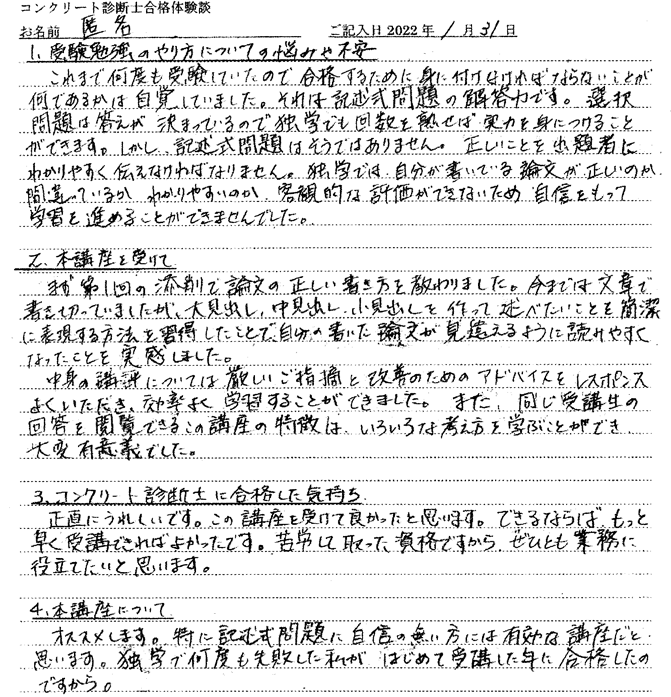 コンクリート診断士合格体験談
お名前 匿名 ご記入日 2022 年 1 月 31 日
1. 受験勉強のやり方についての悩みや不安
これまで何度も受験していたので合格するために身に付けなければならないことが
何であるかは自覚していました。それは記述式問題の解答力です。選択
問題は答えが決まっているので独学でも回数を熟せば実力を身につけること
ができます。しかし、記述式問題はそうではありません。正しいことを出題者に
わかりやすく伝えなければなりません。独学では、自分が書いている論文が正しいのか
間違っているか わかりやすいのか、客観的な評価ができないため 自信をもって
学習を進めることができませんでした。
2. 本講座を受けて
まず第1回の添削で論文の正しい書き方を教わりました。今までは文章で
書き切っていましたが、大見出し、中見出し、小見出しを作って述べたいことを簡潔
に表現する方法を習得したことで、自分の書いた論文が見違えるように読みやすく
なったことを実感しました。
中身の講評については厳しいご指摘と改善のためのアドバイスをレスポンス
よくいただき、効率よく学習することができました。また、同じ受講生の
回答を閲覧できるこの講座の特徴は、いろいろな考え方を学ぶことができ
大変有意義でした。
3. コンクリート診断士に合格した気持ち
正直にうれしいです。この講座を受けて良かったと思います。できるならば、もっと
早く受講できればよかったです。苦労して取った資格ですから、ぜひとも業務に
役立てたいと思います。
4. 本講座について
オススメします。特に記述式問題に自信の無い方には有効な講座だと
思います。独学で何度も失敗した私が はじめて受講した年に合格したの
ですから。